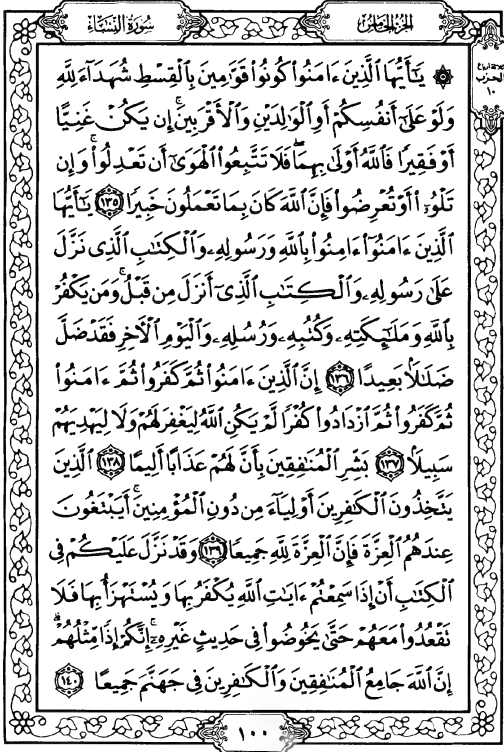 سُورَةُ النِّسَاءِ
الجُزءُ الخَامِسُ
ثلاثة أرباع
الحزب
١٠
۞ يَٰٓأَيُّهَا ٱلَّذِينَ ءَامَنُوا۟ كُونُوا۟ قَوَّٰمِينَ بِٱلْقِسْطِ شُهَدَآءَ لِلَّهِ
وَلَوْ عَلَىٰٓ أَنفُسِكُمْ أَوِ ٱلْوَٰلِدَيْنِ وَٱلْأَقْرَبِينَ ۚ إِن يَكُنْ غَنِيًّا
أَوْ فَقِيرًا فَٱللَّهُ أَوْلَىٰ بِهِمَا ۖ فَلَا تَتَّبِعُوا۟ ٱلْهَوَىٰٓ أَن تَعْدِلُوا۟ ۚ وَإِن
تَلْوُۥٓا۟ أَوْ تُعْرِضُوا۟ فَإِنَّ ٱللَّهَ كَانَ بِمَا تَعْمَلُونَ خَبِيرًا ١٣٥ يَٰٓأَيُّهَا
ٱلَّذِينَ ءَامَنُوٓا۟ ءَامِنُوا۟ بِٱللَّهِ وَرَسُولِهِۦ وَٱلْكِتَٰبِ ٱلَّذِى نَزَّلَ
عَلَىٰ رَسُولِهِۦ وَٱلْكِتَٰبِ ٱلَّذِىٓ أَنزَلَ مِن قَبْلُ ۚ وَمَن يَكْفُرْ
بِٱللَّهِ وَمَلَٰٓئِكَتِهِۦ وَكُتُبِهِۦ وَرُسُلِهِۦ وَٱلْيَوْمِ ٱلْءَاخِرِ فَقَدْ ضَلَّ
ضَلَٰلًۢا بَعِيدًا ١٣٦ إِنَّ ٱلَّذِينَ ءَامَنُوا۟ ثُمَّ كَفَرُوا۟ ثُمَّ ءَامَنُوا۟
ثُمَّ كَفَرُوا۟ ثُمَّ ٱزْدَادُوا۟ كُفْرًا لَّمْ يَكُنِ ٱللَّهُ لِيَغْفِرَ لَهُمْ وَلَا لِيَهْدِيَهُمْ
سَبِيلًۢا ١٣٧ بَشِّرِ ٱلْمُنَٰفِقِينَ بِأَنَّ لَهُمْ عَذَابًا أَلِيمًا ١٣٨ ٱلَّذِينَ
يَتَّخِذُونَ ٱلْكَٰفِرِينَ أَوْلِيَآءَ مِن دُونِ ٱلْمُؤْمِنِينَ ۚ أَيَبْتَغُونَ
عِندَهُمُ ٱلْعِزَّةَ فَإِنَّ ٱلْعِزَّةَ لِلَّهِ جَمِيعًا ١٣٩ وَقَدْ نَزَّلَ عَلَيْكُمْ فِى
ٱلْكِتَٰبِ أَنْ إِذَا سَمِعْتُمْ ءَايَٰتِ ٱللَّهِ يُكْفَرُ بِهَا وَيُسْتَهْزَأُ بِهَا فَلَا
تَقْعُدُوا۟ مَعَهُمْ حَتَّىٰ يَخُوضُوا۟ فِى حَدِيثٍ غَيْرِهِۦٓ ۚ إِنَّكُمْ إِذًا مِّثْلُهُمْ ۗ
إِنَّ ٱللَّهَ جَامِعُ ٱلْمُنَٰفِقِينَ وَٱلْكَٰفِرِينَ فِى جَهَنَّمَ جَمِيعًا ١٤٠
١٠٠